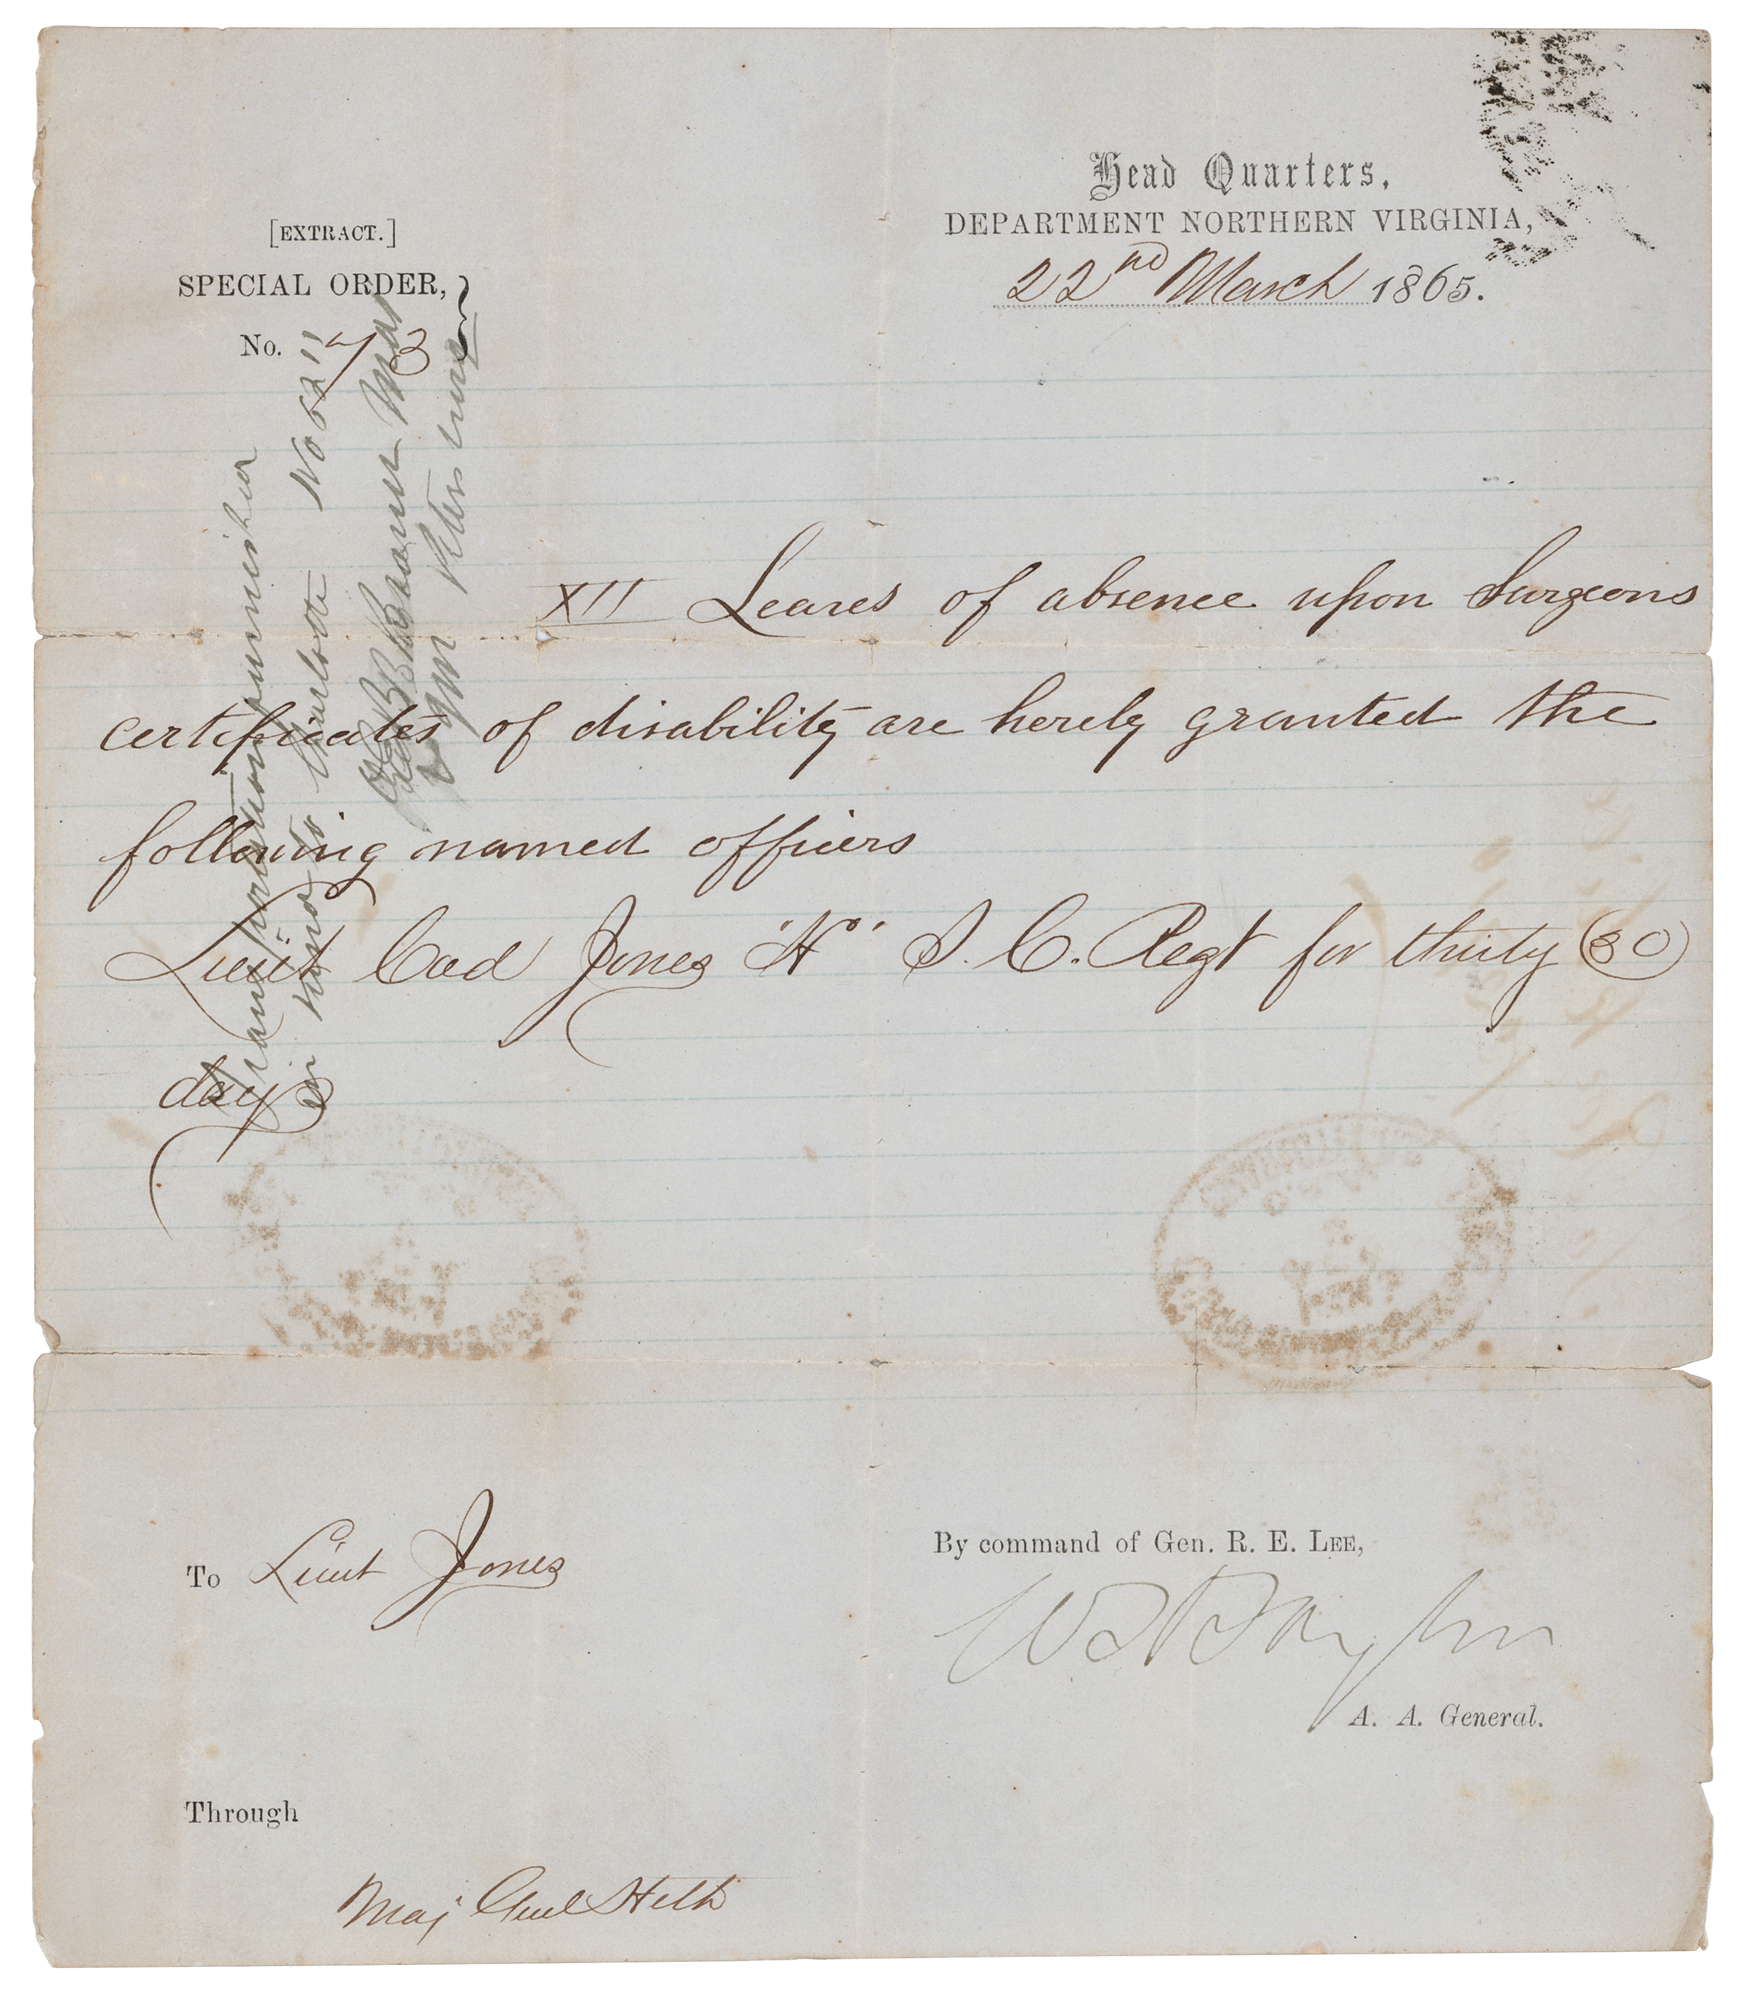 Head Quarters,
DEPARTMENT NORTHERN VIRGINIA,
22nd March 1865.
[EXTRACT.]
SPECIAL ORDER,
No. 73
XII Leaves of absence upon Surgeons
certificates of disability are hereby granted the
following named officers
Lieut Cad Jones "H" S. C. Regt for thirty (30)
days
Transportation furnished
in kind to Charlotte No 6211
Mar
To Lieut Jones
By command of Gen. R. E. LEE,
W H Taylor
A. A. General.
Through
Maj Genl Heth